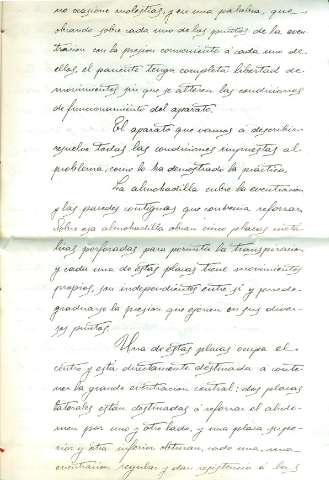 no ocasione molestias, y en una palabra, que
obrando sobre cada uno de los puntos de la even-
tracion con la presion conveniente á cada uno de
ellos, el paciente tenga completa libertad de
movimientos sin que se alteren las condiciones
de funcionamiento del aparato.
El aparato que vamos á describir
resuelve todas las condiciones impuestas al
problema, como lo ha demostrado la práctica.
La almohadilla cubre la eventracion
y las paredes contiguas que convenga reforzar.
Sobre esa almohadilla obran cinco placas metá-
licas perforadas para permitir la transpiracion
y cada una de éstas placas tiene movimientos
propios, son independientes entre sí y puede
graduarse la presion que ejercen en sus diver-
sos puntos.
Una de éstas placas ocupa el
centro y está directamente destinada á conte-
ner la grande eventracion central: dos placas
laterales están destinadas á reforzar el abdo-
men por uno y otro lado, y una placa supe-
rior y otra inferior obturan, cada una, una
eventracion regular y dan resistencia á las